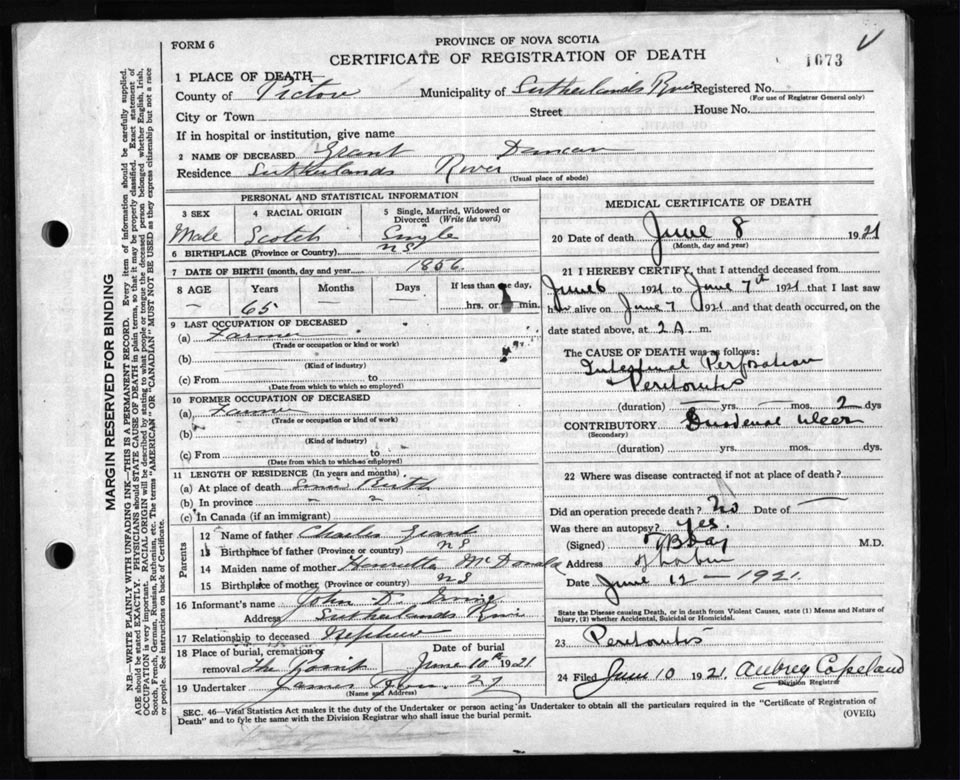 PROVINCE OF NOVA SCOTIA
FORM 6
CERTIFICATE OF REGISTRATION OF DEATH
1673
1 PLACE OF DEATH—
County of Pictou Municipality of Sutherlands River Registered No.
(For use of Registrar General only)
City or Town Street House No.
If in hospital or institution, give name
2 NAME OF DECEASED Grant Duncan
Residence Sutherlands River
(Usual place of abode)
PERSONAL AND STATISTICAL INFORMATION
3 SEX 4 RACIAL ORIGIN 5 Single, Married, Widowed or Divorced (Write the word)
Male Scotch Single
6 BIRTHPLACE (Province or Country) NS
7 DATE OF BIRTH (month, day and year) 1856
8 AGE Years Months Days If less than one day,
— 65 hrs. or min.
9 LAST OCCUPATION OF DECEASED
(a) Farmer
(Trade or occupation or kind or work)
(b)
(Kind of industry)
(c) From to
(Date from which to which so employed)
10 FORMER OCCUPATION OF DECEASED
(a) Farmer
(Trade or occupation or kind of work)
(b)
(Kind of industry)
(c) From to
(Date from which to which so employed)
11 LENGTH OF RESIDENCE (In years and months)
(a) At place of death Since Birth
(b) In province
(c) In Canada (if an immigrant)
Parents
12 Name of father Charles Grant
13 Birthplace of father (Province or country) NS
14 Maiden name of mother Henrietta McDonald
15 Birthplace of mother (Province or country) NS
16 Informant's name John D.
Address Sutherlands River
17 Relationship to deceased Nephew
18 Place of burial, cremation or removal Date of burial
The June 10th 1921
19 Undertaker James
(Name and Address)
MEDICAL CERTIFICATE OF DEATH
20 Date of death June 8 1921
(Month, day and year)
21 I HEREBY CERTIFY, that I attended deceased from
June 6 1921 to June 7th 1921 that I last saw
him alive on June 7 1921 and that death occurred, on the
date stated above, at 2 A. m.
The CAUSE OF DEATH was as follows:
Intestinal Perforation
+ Peritonitis
(duration) — yrs. — mos. 2 dys
CONTRIBUTORY Duodenal Ulcer
(Secondary)
(duration) yrs. mos. dys.
22 Where was disease contracted if not at place of death?
Did an operation precede death? No Date of —
Was there an autopsy? Yes.
(Signed) M.D.
Address Thorburn
Date June 12 — 1921.
State the Disease causing Death, or in death from Violent Causes, state (1) Means and Nature of Injury, (2) whether Accidental, Suicidal or Homicidal.
23 Peritonitis
24 Filed June 10 1921. Aubrey Copeland
Division Registrar
SEC. 46—Vital Statistics Act makes it the duty of the Undertaker or person acting as Undertaker to obtain all the particulars required in the "Certificate of Registration of
Death" and to fyle the same with the Division Registrar who shall issue the burial permit.
(OVER)
MARGIN RESERVED FOR BINDING
N.B.—WRITE PLAINLY WITH UNFADING INK—THIS IS A PERMANENT RECORD. Every item of information should be carefully supplied.
AGE should be stated EXACTLY. PHYSICIANS should STATE CAUSE OF DEATH in plain terms, so that it may be properly classified. Exact statement of
OCCUPATION is very important. RACIAL ORIGIN will be described by stating to what people or tongue the deceased person belonged whether English, Irish,
Scotch, French, German, Russian, Ruthenian, etc. The terms "AMERICAN" OR "CANADIAN" MUST NOT BE USED as they express citizenship but not a race
or people. See instructions on back of Certificate.